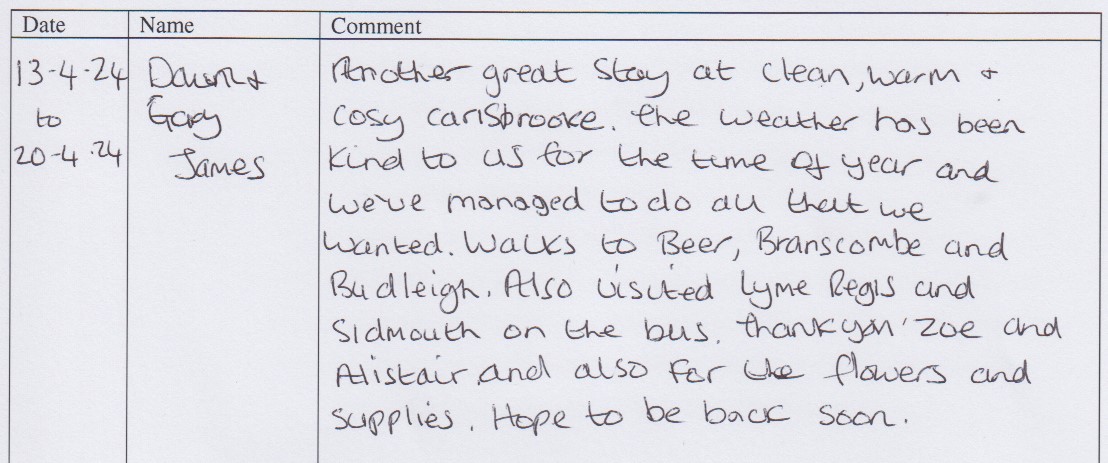 Date Name Comment
13-4-24 Dawn + Another great Stay at clean, warm +
to Gary cosy carisbrooke. the weather has been
20-4-24 James kind to us for the time of year and
we've managed to do all that we
wanted. Walks to Beer, Branscombe and
Budleigh. Also visited Lyme Regis and
Sidmouth on the bus. thankyou Zoe and
Alistair and also for the flowers and
supplies. Hope to be back soon.